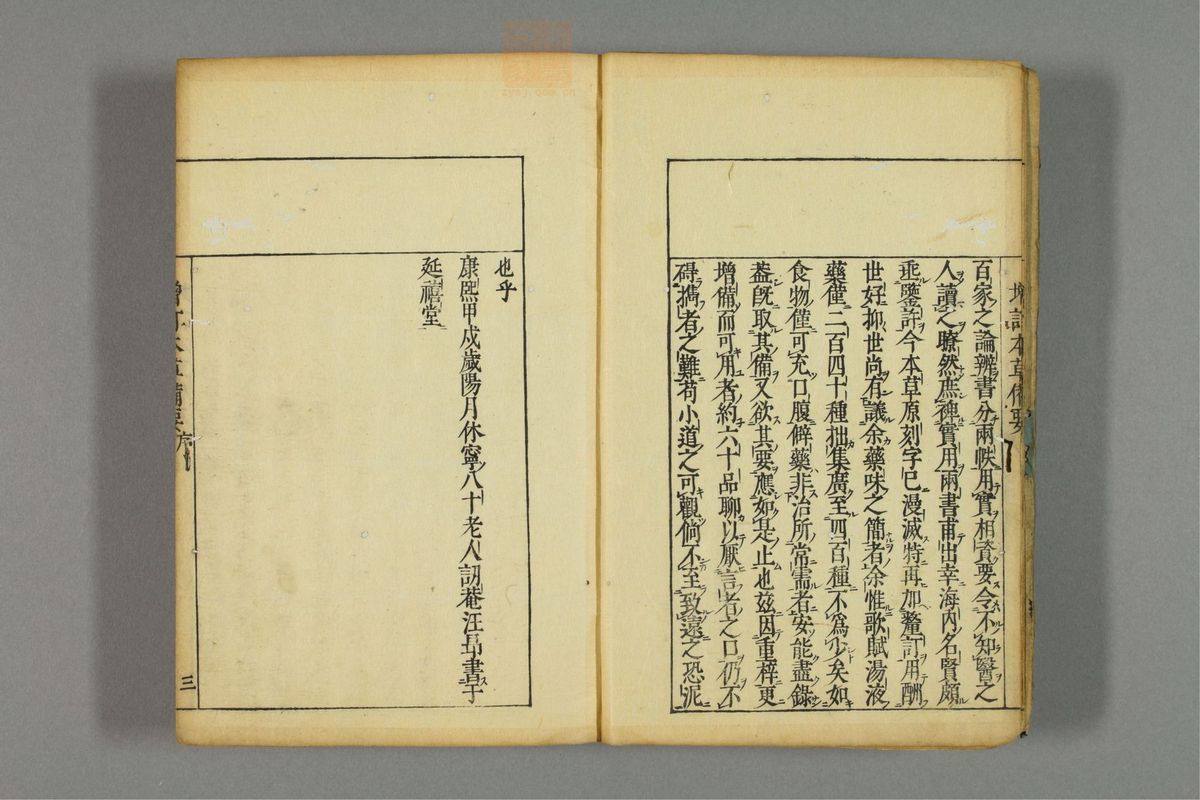 百家之論辨書分兩帙用實相資要令不知醫之
人讀之瞭然庶裨實用兩書甫出幸海内名賢頗
垂鑒許今本草原刻字已漫滅特再加釐訂用酬
世好抑世尚有議余藥味之簡者余惟歌賦湯液
藥僅二百四十種拙集廣至四百種不爲少矣如
食物僅可充口腹僻藥非治所常需者安能盡錄
葢旣取其備又欲其要應如是止也兹因重梓更
增備而可用者約六十品聊以厭言者之口仍不
碍攜者之難苟小道之可觀倘不至致遠之恐泥
也乎
康熙甲戌歲陽月休寧八十老人訒菴汪昂書于
延禧堂
增訂本草備要
增訂本草備要序
三
zysj.com.cn